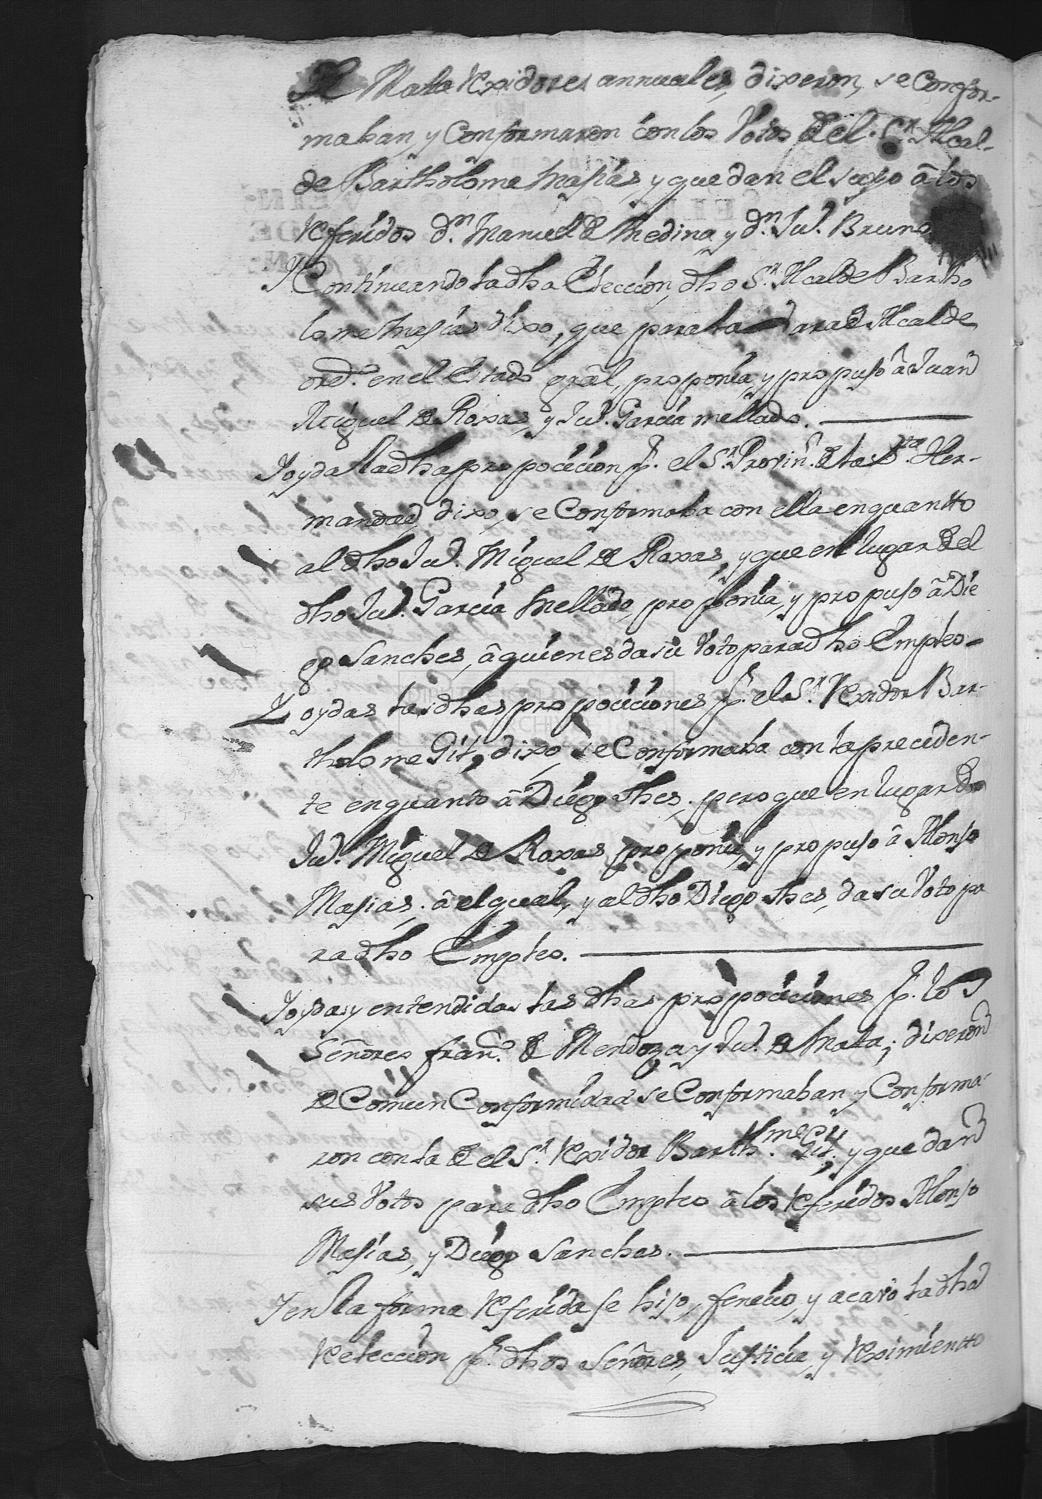 de Mata Rexidores annuales, dixeron, se Confor-
maban, y Conformaron con los Votos de el Sr. Alcal-
de Bartholome Masias, y que dan el suyo â los
Referidos Dn. Manuel de Medina, y Dn. Jua. Bruno
Y Continuando ta dha Elección, dho Sr. Alcalde Bartho
lome Mesias dixo, que para la Vara de Alcalde
ordo. en el Estado gral, proponia, y propuso â Juan
Miguel de Roxas, y Jua. Garcia Mellado.
Y oyda la dha propocicion pr. el Sr. Provinl. de la Sta. Her-
mandad, dixo, se Conformaba con ella en quantto
al dho Jua. Miguel de Roxas, y que en lugar de el
dho Jua. Garcia Mellado, proponia, y propuso â Die
go Sanches, â quienes da su Voto para dho Empleo-
Y oydas las dhas propociciones pr. el Sr. Rexidor Bar-
tholome Gil, dixo, se Conformaba con la preceden-
te en quanto â Diego Shes. pero que en lugar de
Jua. Miguel de Roxas proponia, y propuso â Alonso
Masias, â el qual, y al dho Diego Shes, da su Voto pa
ra dho Empleo.
Y oydas, y entendidas las dhas propociciones pr. los
Señores Franco. de Mendoza y Jua. de Mata; dixeron
de Comun Conformidad se Conformaban, y Conforma-
ron con la de el Sr. Rexidor Barthme. Gil, y que dan
sus Votos para dho Empleo â los Referidos Alonso
Masias, y Diego Sanches.
Y en la forma Referida se hiso, fenecio, y acavo ta dha
Relección pr. dhos Señores, Justicia, y Reximientto